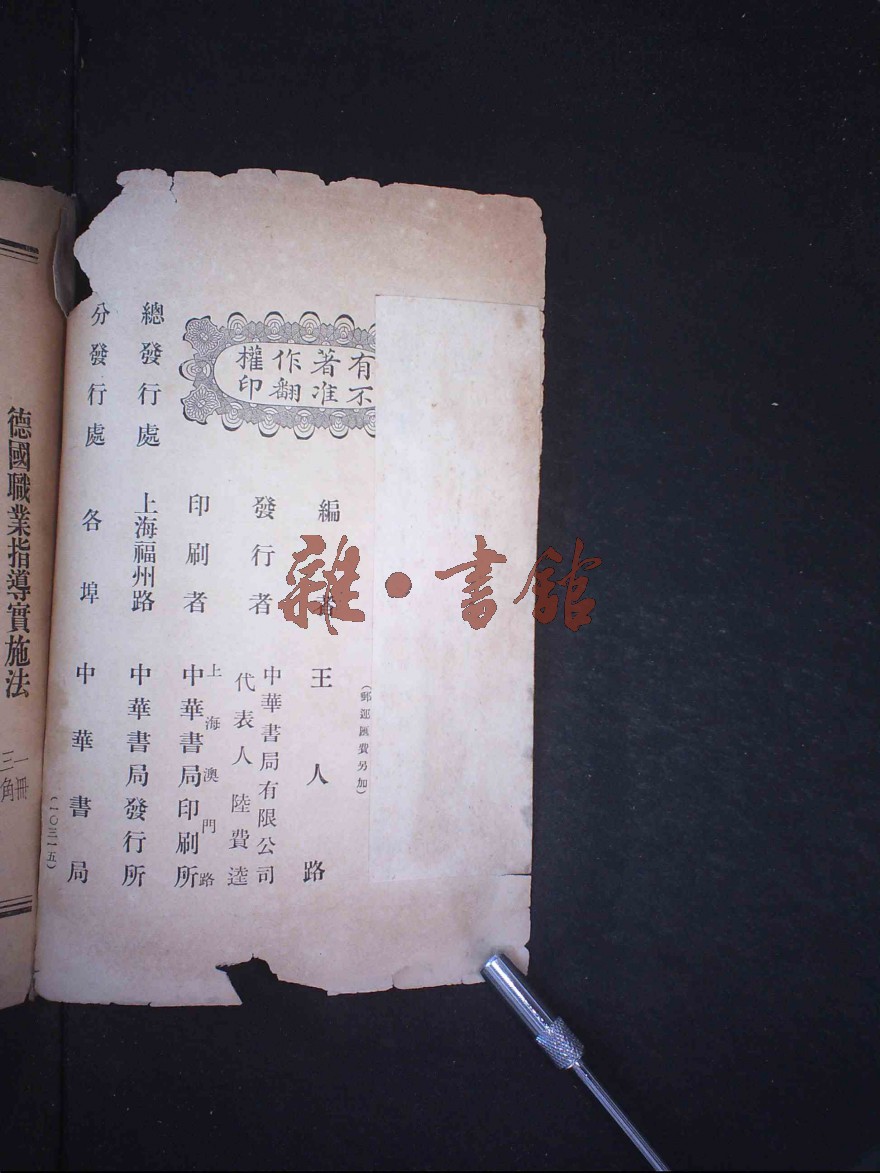 有著作權
不准翻印
(郵運匯費另加)
編者 王人路
發行者 中華書局有限公司
代表人 陸費逵
印刷者 上海澳門路
中華書局印刷所
總發行處 上海福州路 中華書局發行所
分發行處 各埠 中華書局
(一〇三一五)
德國職業指導實施法
一冊
三角
雜·書館